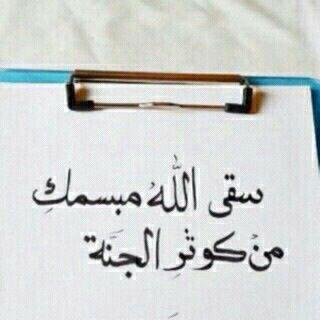 سقى اللهُ مبسمكِ
منْ كوثرِ الجنَة